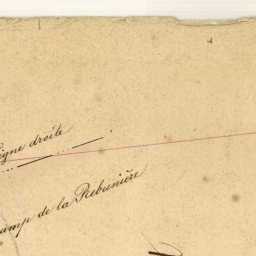 ligne droite
Champ de la Rebunière